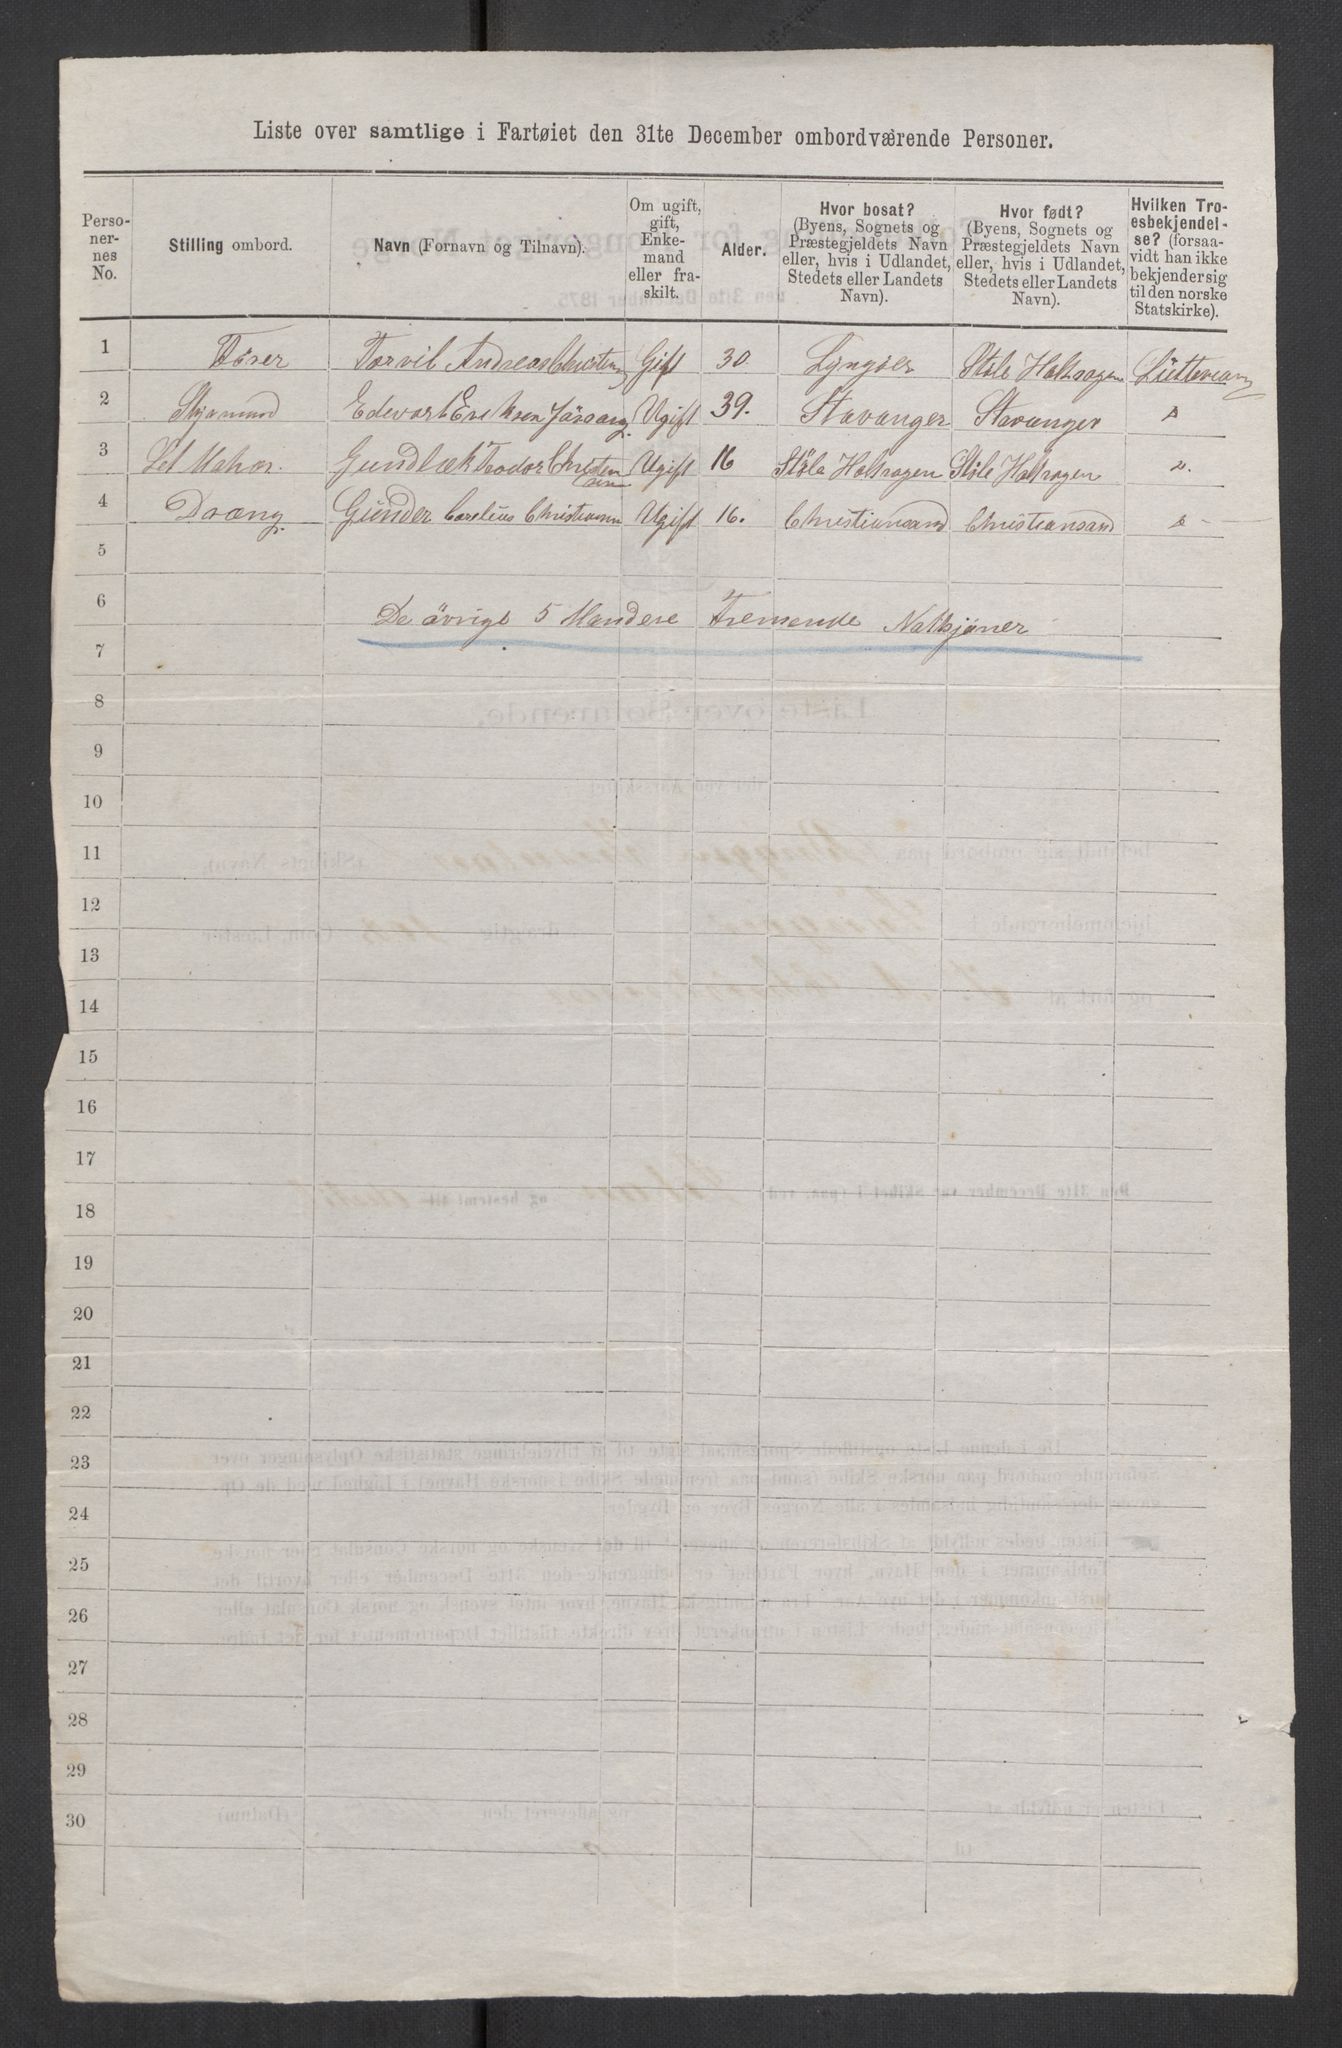 Liste over samtlige i Fartøiet den 31te December ombordværende Personer.
Personernes No.
Stilling ombord.
Navn (Fornavn og Tilnavn).
Om ugift, gift, Enkemand eller fraskilt.
Alder.
Hvor bosat? (Byens, Sognets og Præstegjeldets Navn eller, hvis i Udlandet, Stedets eller Landets Navn).
Hvor født? (Byens, Sognets og Præstegjeldets Navn eller, hvis i Udlandet, Stedets eller Landets Navn).
Hvilken Troesbekjendelse? (forsaavidt han ikke bekjender sig til den norske Statskirke).
1 Förer Torvil Andreas Christen Gift 30. Lyngöer Stöle Holtsogen
2 Styrmand Edevart Eriksen Ugift 39. Stavanger Stavanger
3 Let Matros. Gundlæk Teodor Christen Ugift 16 Stöle Holtsogen Stöle Holtsogen
sen
4 Dræng Gunder Carelius Christiann Ugift 16. Christiansand Christiansand
5
6 De övrige 5 Mand ere Fremende
7
8
9
10
11
12
13
14
15
16
17
18
19
20
21
22
23
24
25
26
27
28
29
30